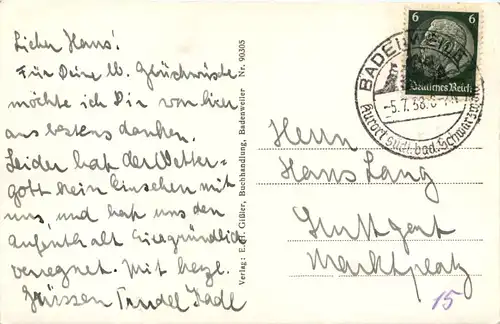 Lieber Hans!
Für Deine lb. Glückwünsche
möchte ich Dir von hier
aus bestens danken.
Leider hat der Wetter-
gott kein Einsehen mit
uns, und hat uns den
Aufenthalt gründlich
verregnet. Mit herzl.
Grüssen Trudel
Verlag: E. H. Gißler, Buchhandlung, Badenweiler Nr. 90305
6 6
Deutsches Reich
BADENWEILER
-5.7.38.
Kurort südl. bad. Schwarzwald
Herrn
Hans Lang
Stuttgart
Marktplatz
15